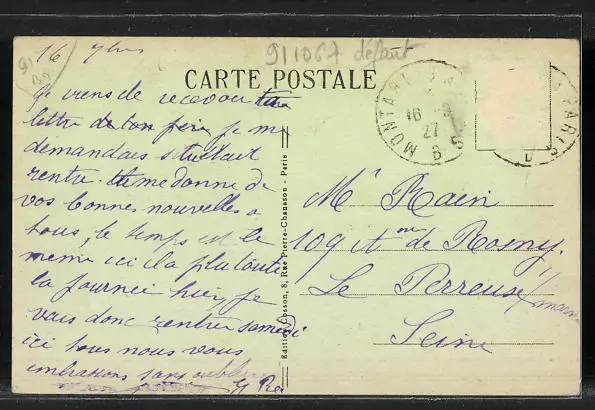 16 7bre
911067 défaut
91
CARTE POSTALE
Je viens de recevoir ta
lettre de ton père, je me
demandais si tu étais
rentré. tu me donne de
vos bonnes nouvelles a
tous, le temps est le
meme ici il a plu toute
la journée hier, je
vais donc rentrer samedi
ici tous nous vous
embrassons sans oublier
Mr Rain
109 de Rosny
Le Perreux
Seine
Edition Cosson, 8, Rue Pierre-Chausson - Paris
16
27